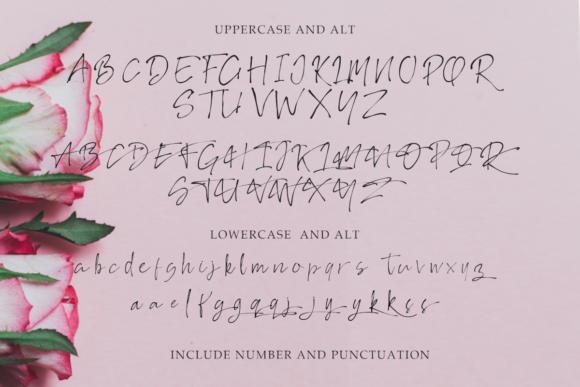 UPPERCASE AND ALT
ABCDEFGHIJKLMNOPQR
STUVWXYZ
ABCDEFGHIJKLMNOPQR
STUVWXYZ
LOWERCASE AND ALT
abcdefghijklmnopqrs tuvwxyz
INCLUDE NUMBER AND PUNCTUATION